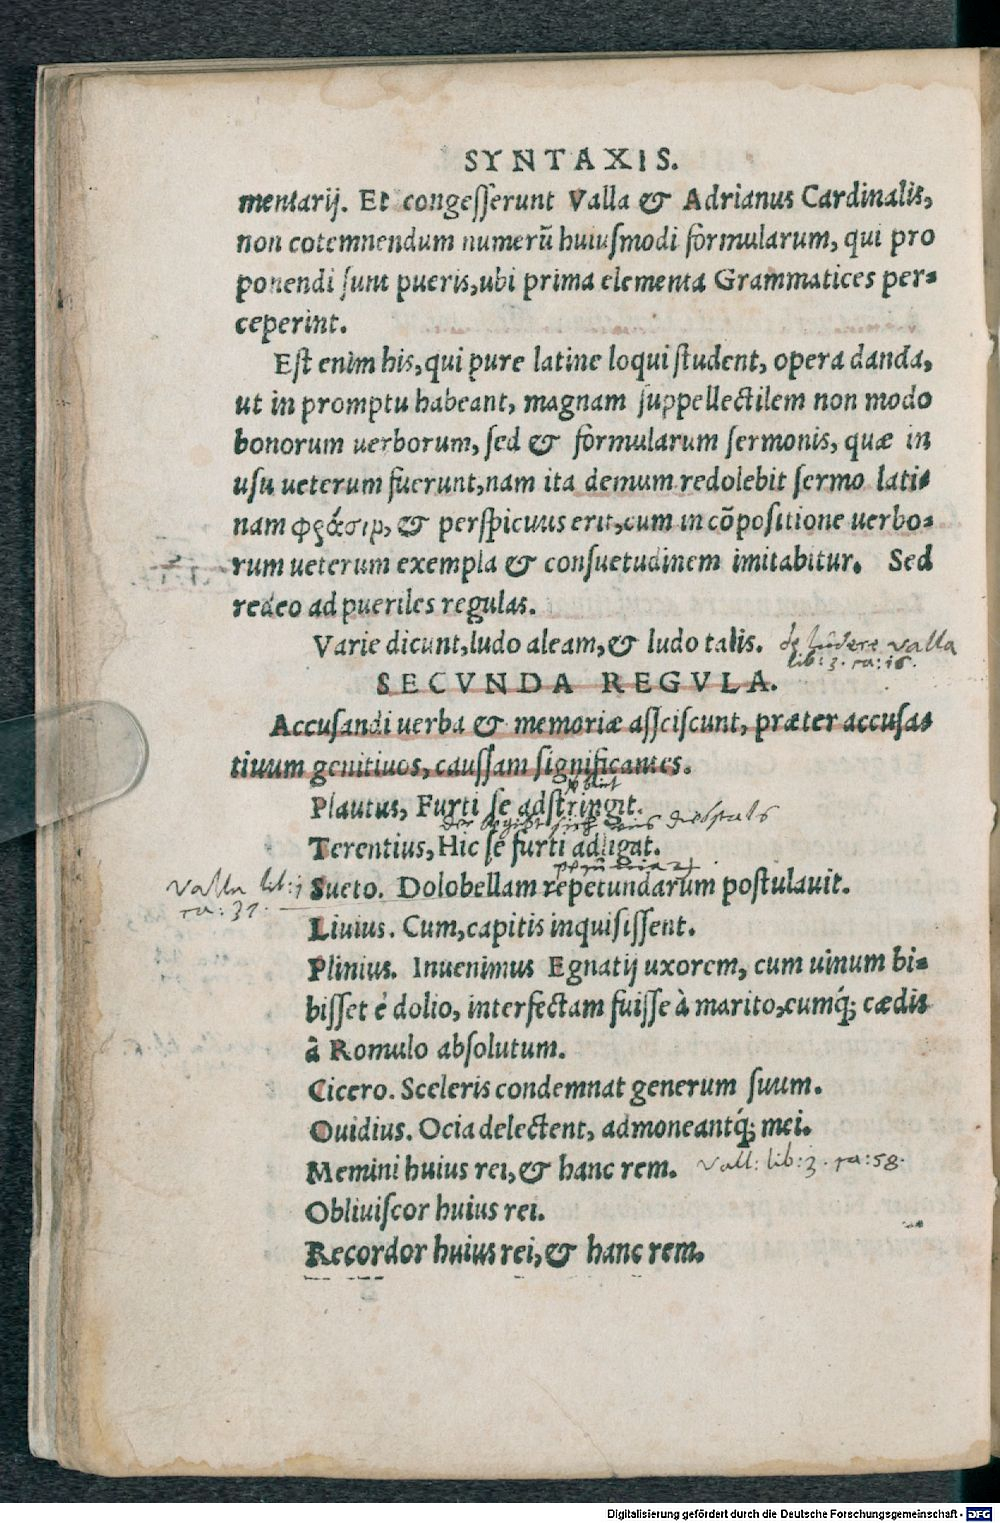 SYNTAXIS.
mentarij. Et congesserunt Valla & Adrianus Cardinalis,
non cotemnendum numerū huiusmodi formularum, qui pro
ponendi sunt pueris,ubi prima elementa Grammatices per-
ceperint.
Est enim his,qui pure latine loqui student, opera danda,
ut in promptu habeant, magnam suppellectilem non modo
bonorum uerborum, sed & formularum sermonis, quæ in
usu ueterum fuerunt,nam ita demum redolebit sermo lati-
nam φράσιμ, & perspicuus erit,cum in cōpositione uerbo-
rum ueterum exempla & consuetudinem imitabitur. Sed
redeo ad pueriles regulas.
Varie dicunt,ludo aleam,& ludo talis. de ludere valla
lib: 3. ca: 16.
SECVNDA REGVLA.
Accusandi uerba & memoriæ asciscunt, præter accusa-
tiuum genitiuos, caussam significantes.
Plautus, Furti se adstringit.
der begibt sich diebstals
Terentius, Hic se furti adligat.
Valla lib: Sueto. Dolobellam repetundarum postulauit.
Liuius. Cum,capitis inquisissent.
Plinius. Inuenimus Egnatij uxorem, cum uinum bi-
bisset é dolio, interfectam fuisse à marito,cumq́; cædis
à Romulo absolutum.
Cicero. Sceleris condemnat generum suum.
Ouidius. Ocia delectent, admoneantq́; mei.
Memini huius rei,& hanc rem. Vall: lib: 3. ca: 58.
Obliuiscor huius rei.
Recordor huius rei,& hanc rem.
Digitalisierung gefördert durch die Deutsche Forschungsgemeinschaft - DFG